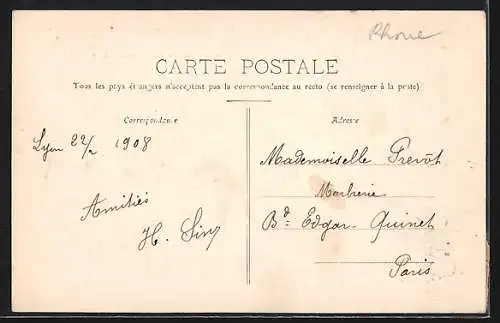 Rhone
CARTE POSTALE
Tous les pays étrangers n'acceptent pas la correspondance au recto (se renseigner à la poste)
Correspondance
Adresse
Lyon 22/2 1908
Amitiés
H.
Mademoiselle Prevôt
Marbrerie
Bd Edgar Quinet
Paris